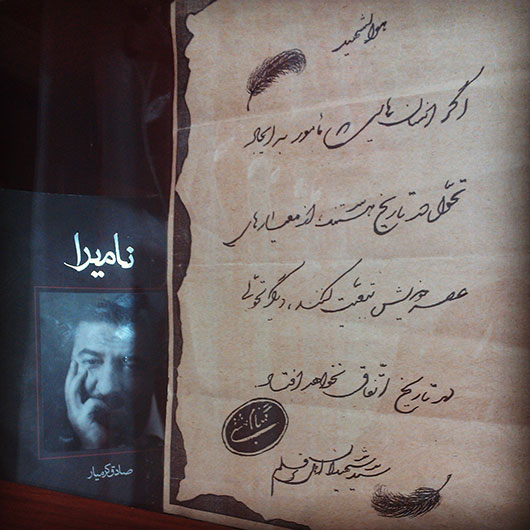 هوالشهید
اگر انسان‌هایی که مأمور به ایجاد
تحول در تاریخ هستند، از معیارهای
عصر خویش تبعیت کنند، دیگر تحولی
در تاریخ اتفاق نخواهد افتاد
سید شهیدان اهل قلم
نامیرا
صادق کرمیار